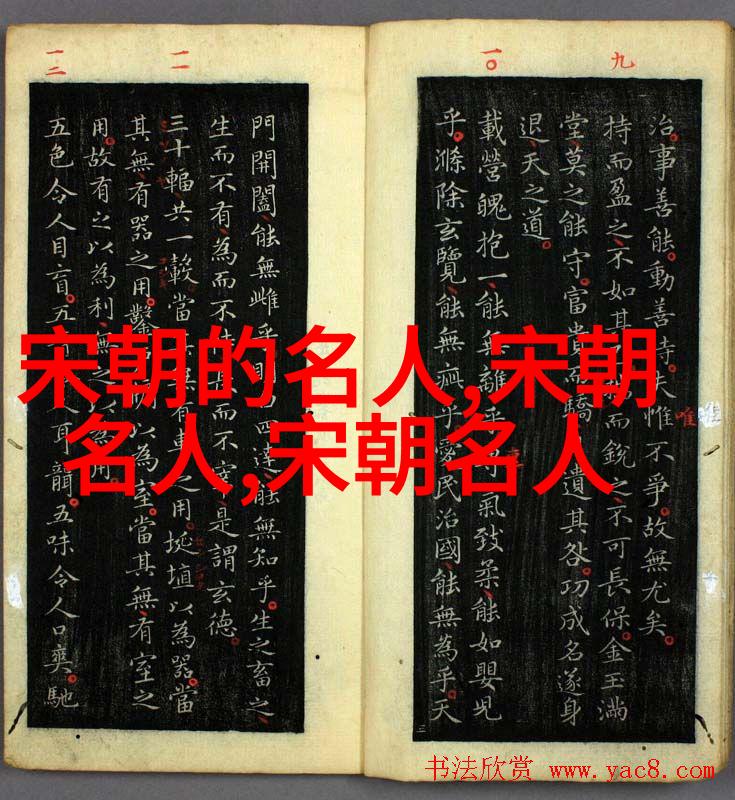 九
治事善能動善時夫惟不爭故無尤矣
唯
持而盈之不如其而銳之不可長保金玉滿
堂莫之能守富貴而驕遺其咎功成名遂身
退天之道
一〇
載營魄抱一能無離乎氣致柔能如嬰兒
乎滌除玄覽能無疵乎愛民治國能無為乎天
門開闔能無雌乎四達能無知乎生之畜之
生而不有為而不而不宰是謂玄德
一一
三十輻共一轂當有車之用埏埴以為器當
其無有器之用鑿以為室當其無有室之
用故有之以為利無之以為用
一二
五色令人目盲五人耳聾五味令人口爽馳
宋朝的名人,宋朝
名人,宋朝名人
书法欣赏 www.yac8.com